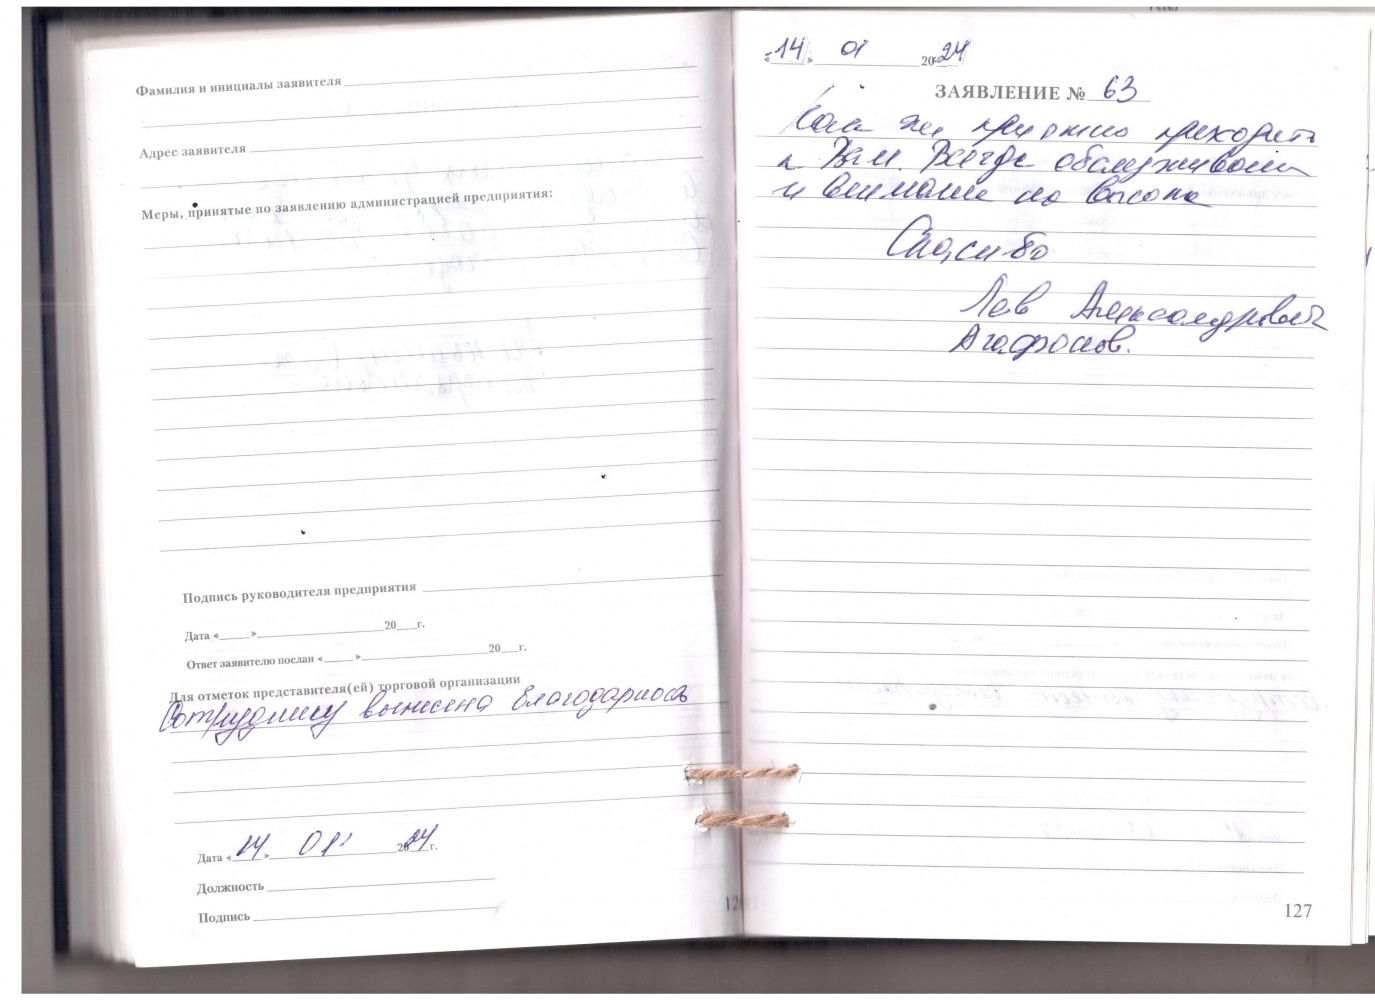 Фамилия и инициалы заявителя
Адрес заявителя
Меры, принятые по заявлению администрацией предприятия:
Подпись руководителя предприятия
Дата «____»____20__г.
Ответ заявителю послан «____»____20__г.
Для отметок представителя(ей) торговой организации
Сотруднику вынесена благодарность
Дата «14» 01 2024г.
Должность
Подпись
«14» 01 2024
ЗАЯВЛЕНИЕ № 63
Как же приятно приходить
к Вам. Всегда обслуживание
и внимание на высоте
Спасибо
Лев Александрович
Агафонов.
127